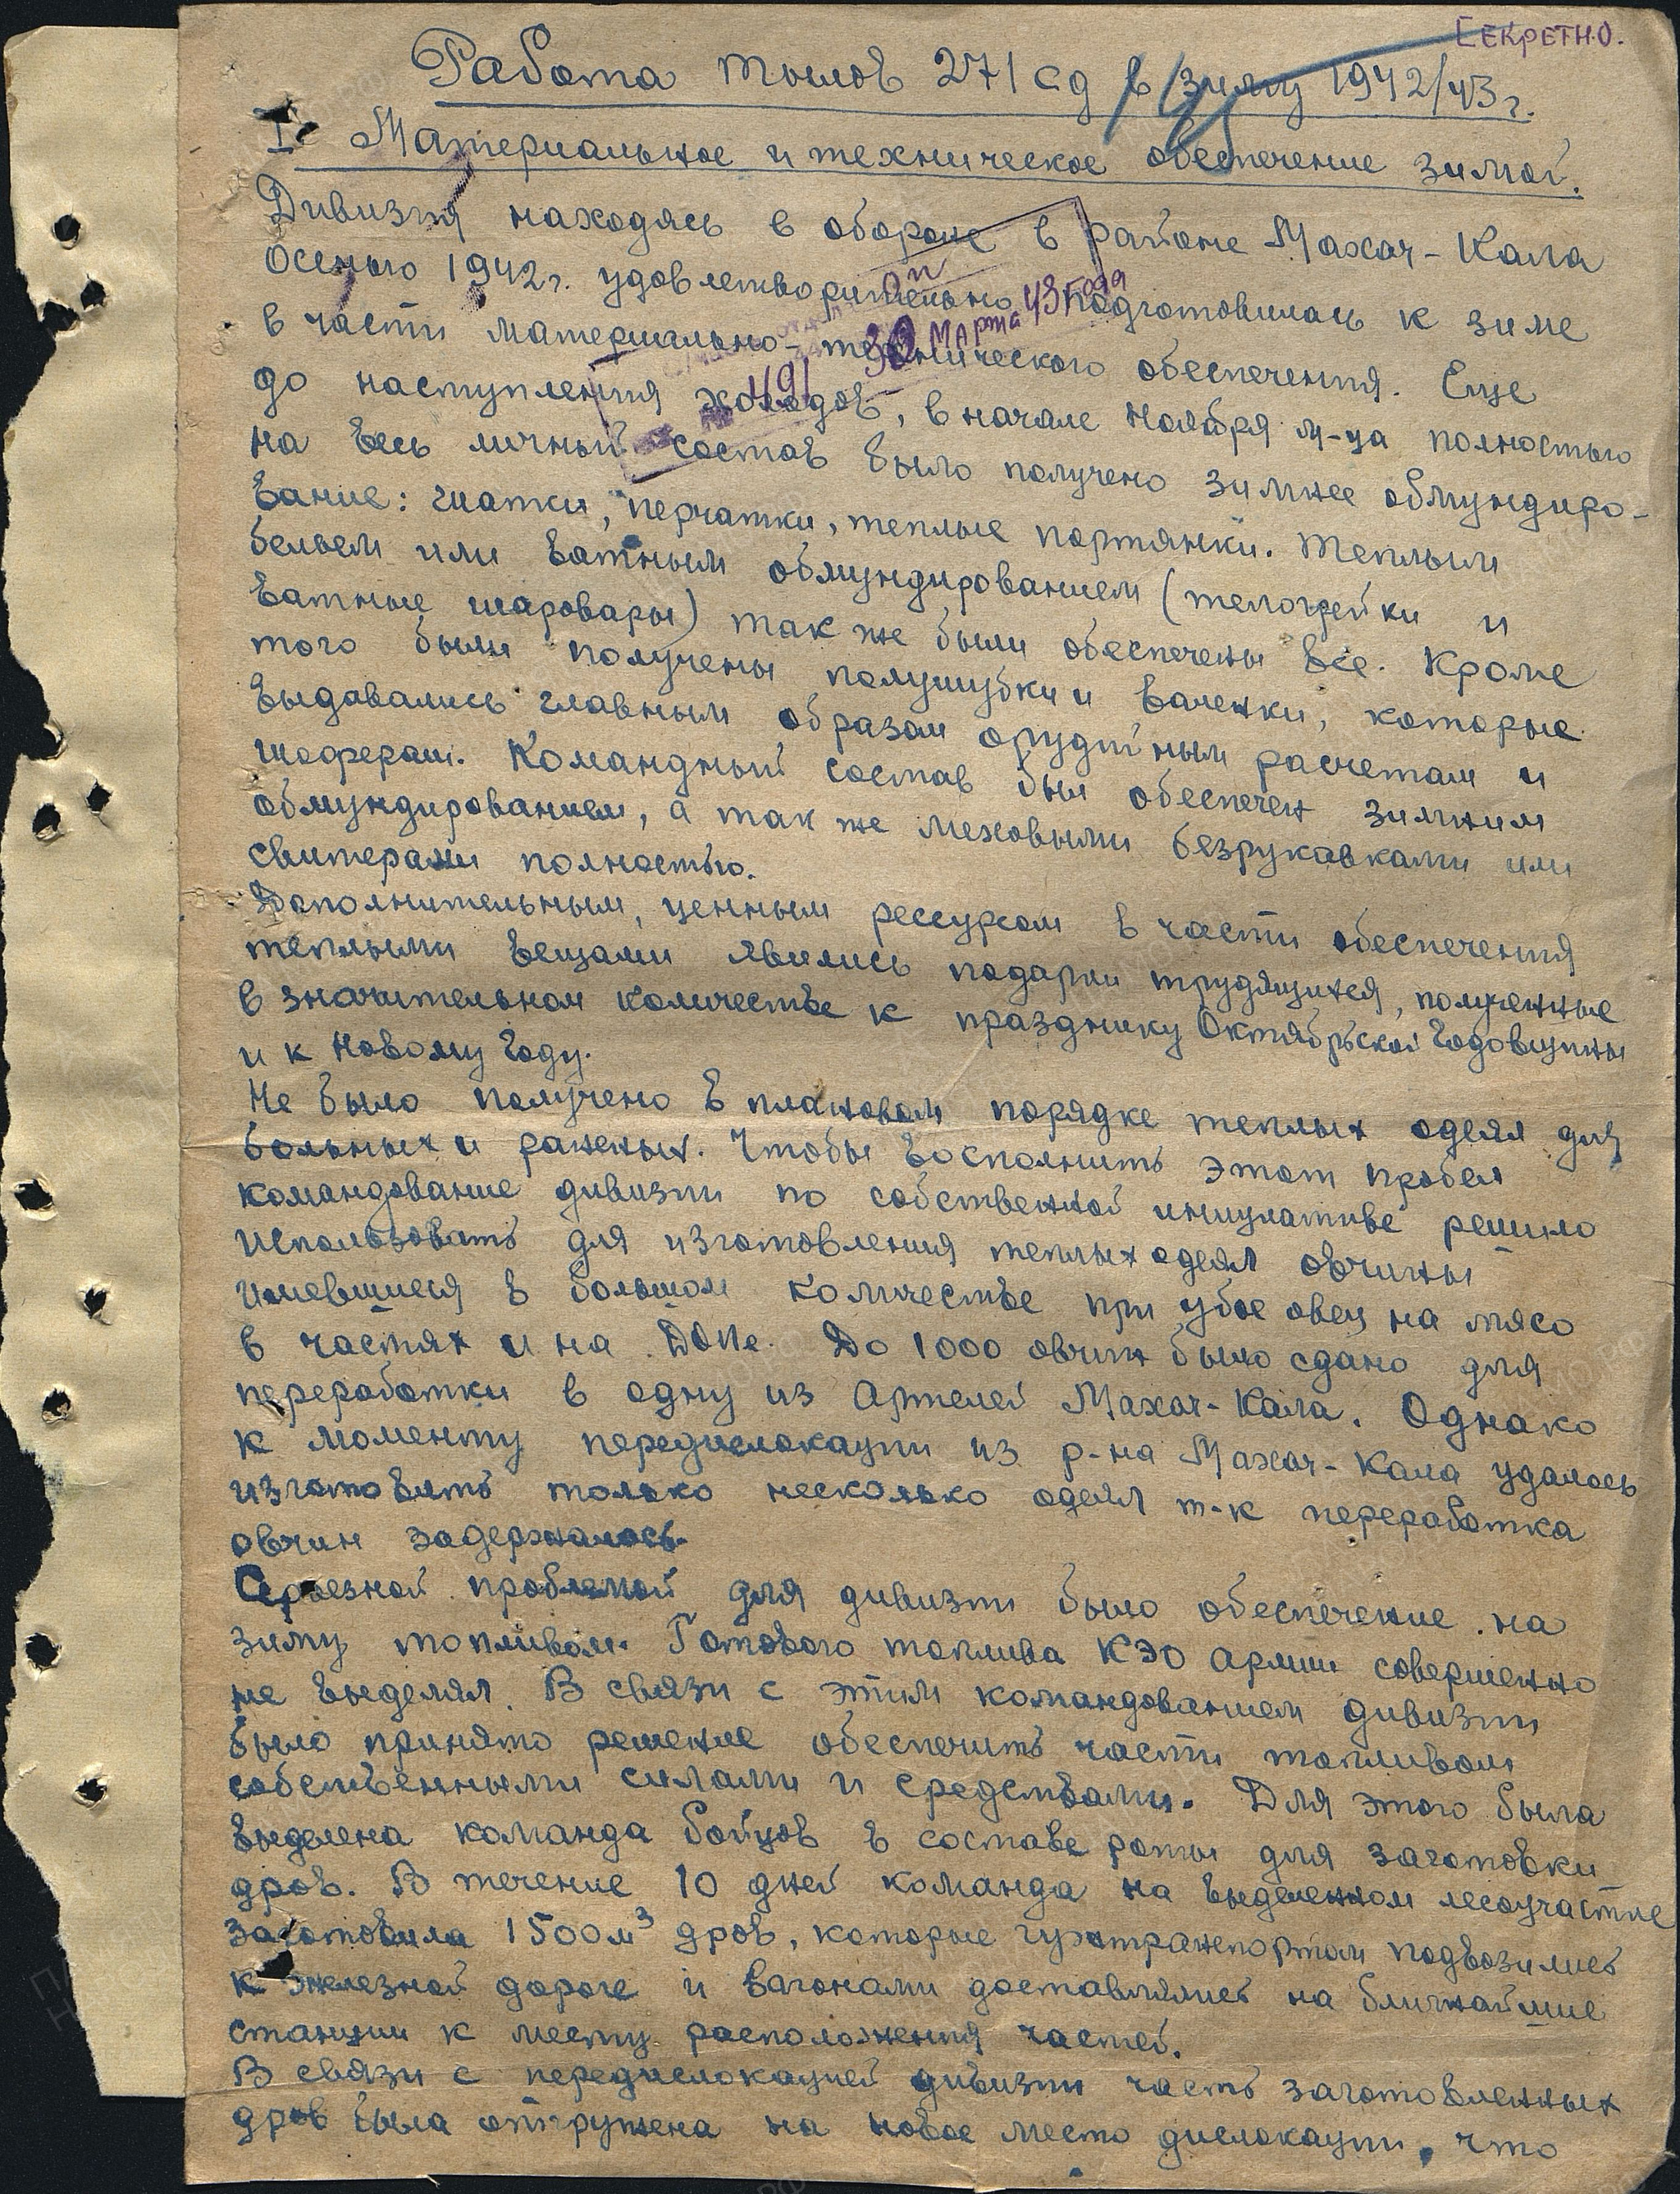 Секретно.
Работа тылов 271 сд в зиму 1942/43 г.
I. Материальное и техническое обеспечение зимой.
Дивизия находясь в обороне в районе Махач-Кала
осенью 1942 г. удовлетворительно подготовилась к зиме
в части материально-технического обеспечения. Еще
до наступления холодов, в начале Ноября м-ца полностью
на весь личный состав было получено зимнее обмундиро-
вание: шапки, перчатки, теплые портянки. Теплым
бельем или ватным обмундированием (телогрейки и
ватные шаровары) так же были обеспечены все. Кроме
того были получены полушубки и валенки, которые
выдавались главным образом орудийным расчетам и
шоферам. Командный состав был обеспечен зимним
обмундированием, а так же меховыми безрукавками или
свитерами полностью.
Дополнительным, ценным рессурсом в части обеспечения
теплыми вещами явились подарки трудящихся, полученные
в значительном количестве к празднику Октябрьской Годовщины
и к Новому Году.
Не было получено в плановом порядке теплых одеял для
больных и раненых. Чтобы восполнить этот пробел
командование дивизии по собственной инициативе решило
использовать для изготовления теплых одеял овчины
имевшиеся в большом количестве при убое овец на мясо
в частях и на ДОПе. До 1000 овчин было сдано для
переработки в одну из Артелей Махач-Кала. Однако
к моменту передислокации из р-на Махач-Кала удалось
изготовить только несколько одеял т-к переработка
овчин задержалась.
Серьезной проблемой для дивизии было обеспечение на
зиму топливом. Готового топлива КЭО Армии совершенно
не выделял. В связи с этим командованием дивизии
было принято решение обеспечить части топливом
собственными силами и средствами. Для этого была
выделена команда бойцов в составе роты для заготовки
дров. В течение 10 дней команда на выделенном лесоучастке
заготовила 1500 м³ дров, которые гужтранспортом подвозились
к железной дороге и вагонами доставлялись на ближайшие
станции к месту расположения частей.
В связи с передислокацией дивизии часть заготовленных
дров была отгружена на новое место дислокации, что
491
30 Марта 43 года